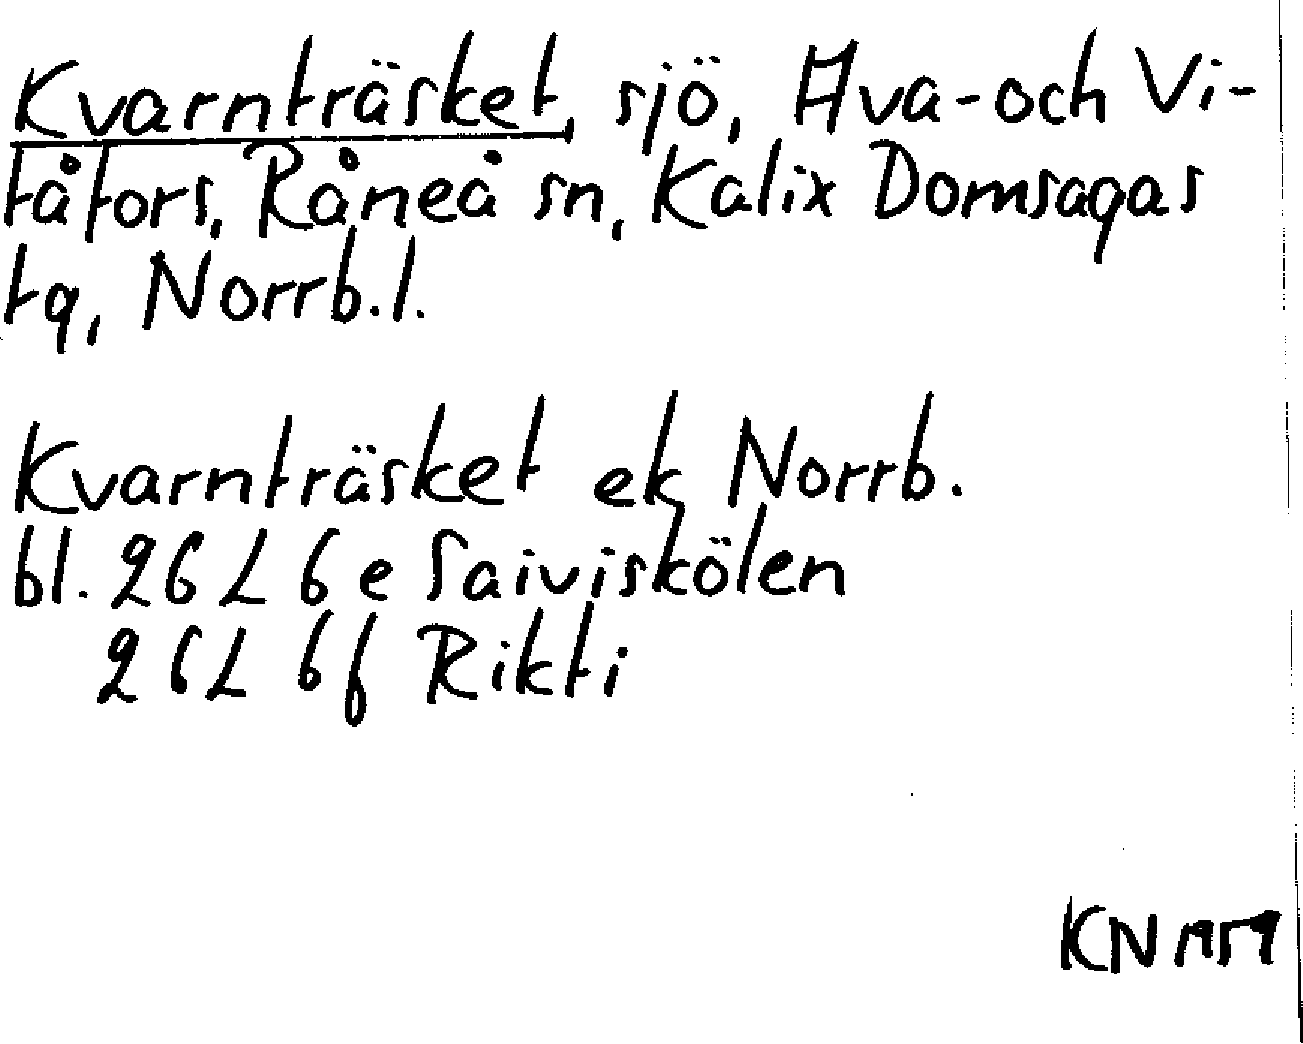 Kvarnträsket, sjö, Avа-och Vi-
tåfors, Råneå sn, Kalix Domsagas
tg, Norrb.l.
Kvarnträsket ek Norrb.
bl. 26L 6e Saiviskölen
26L 6f Rikti
KN 1959